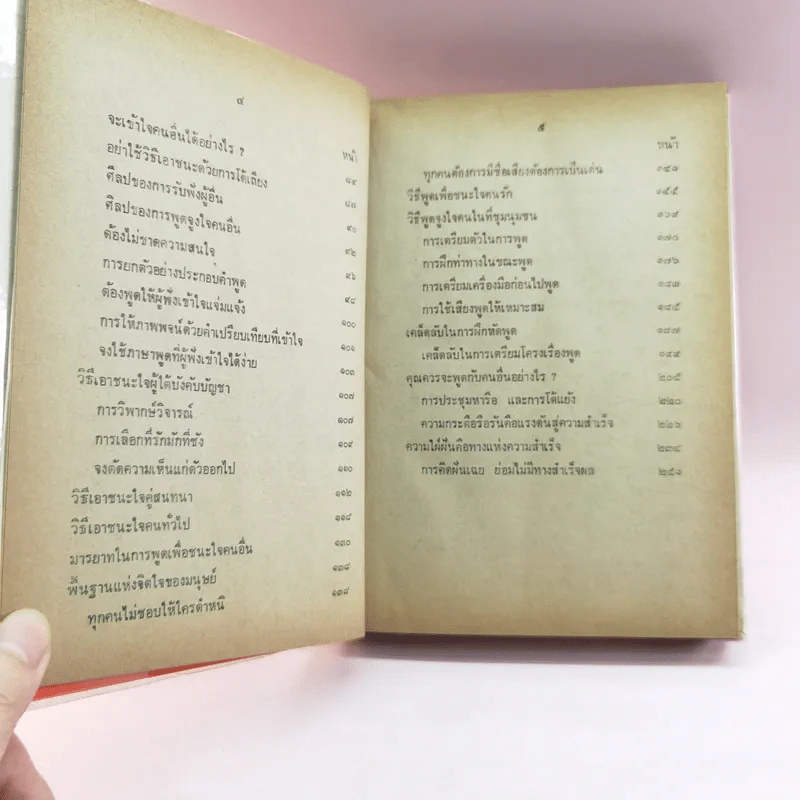 ๔
หน้า
จะเข้าใจคนอื่นได้อย่างไร ? ๘๔
อย่าใช้วิธีเอาชนะด้วยการโต้เถียง ๘๗
ศิลปของการรับฟังผู้อื่น ๙๐
ศิลปของการพูดจูงใจคนอื่น ๙๒
ต้องไม่ขาดความสนใจ ๙๖
การยกตัวอย่างประกอบคำพูด ๙๘
ต้องพูดให้ผู้ฟังเข้าใจแจ่มแจ้ง ๑๐๐
การให้ภาพพจน์ด้วยคำเปรียบเทียบที่เข้าใจ ๑๐๑
จงใช้ภาษาพูดที่ผู้ฟังเข้าใจได้ง่าย ๑๐๓
วิธีเอาชนะใจผู้ใต้บังคับบัญชา ๑๐๗
การวิพากษ์วิจารณ์ ๑๐๗
การเลือกที่รักมักที่ชัง ๑๐๙
จงตัดความเห็นแก่ตัวออกไป ๑๑๐
วิธีเอาชนะใจคู่สนทนา ๑๑๒
วิธีเอาชนะใจคนทั่วไป ๑๑๘
มารยาทในการพูดเพื่อชนะใจคนอื่น ๑๓๐
พื้นฐานแห่งจิตใจของมนุษย์ ๑๓๘
ทุกคนไม่ชอบให้ใครตำหนิ ๑๓๘
๕
หน้า
ทุกคนต้องการมีชื่อเสียงต้องการเป็นเด่น ๑๔๑
วิธีพูดเพื่อชนะใจคนรัก ๑๕๕
วิธีพูดจูงใจคนในที่ชุมนุมชน ๑๖๙
การเตรียมตัวในการพูด ๑๗๐
การฝึกท่าทางในขณะพูด ๑๗๖
การเตรียมเครื่องมือก่อนไปพูด ๑๘๓
การใช้เสียงพูดให้เหมาะสม ๑๘๕
เคล็ดลับในการฝึกหัดพูด ๑๘๗
เคล็ดลับในการเตรียมโครงเรื่องพูด ๑๙๔
คุณควรจะพูดกับคนอื่นอย่างไร ? ๒๐๕
การประชุมหารือ และการโต้แย้ง ๒๒๐
ความกระตือรือร้นคือแรงดันสู่ความสำเร็จ ๒๒๖
ความใฝ่ฝันคือทางแห่งความสำเร็จ ๒๓๔
การคิดฝันเฉย ย่อมไม่มีทางสำเร็จผล ๒๕๑